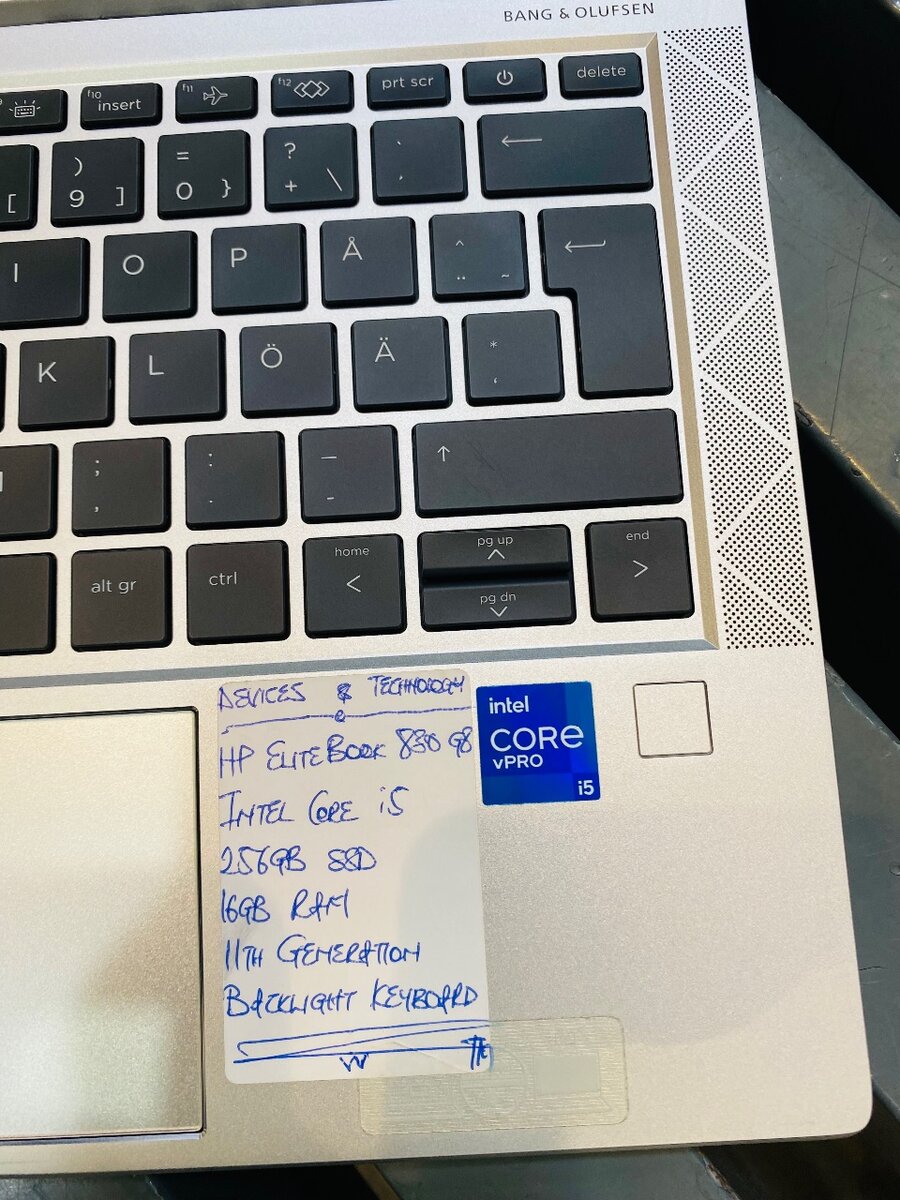 BANG & OLUFSEN
f10 insert f11 f12 prt scr delete
[ ) 9 ] = 0 } ? + \ ` ´ ←
I O P Å ^ ¨ ~ ↵
K L Ö Ä * '
; , : . _ - ↑
alt gr ctrl home < pg up ^ pg dn v end >
DEVICES & TECHNOLOGY
HP ELITEBOOK 830 G8
INTEL CORE i5
256GB SSD
16GB RAM
11TH GENERATION
BACKLIGHT KEYBOARD
intel
CORE
vPRO
i5